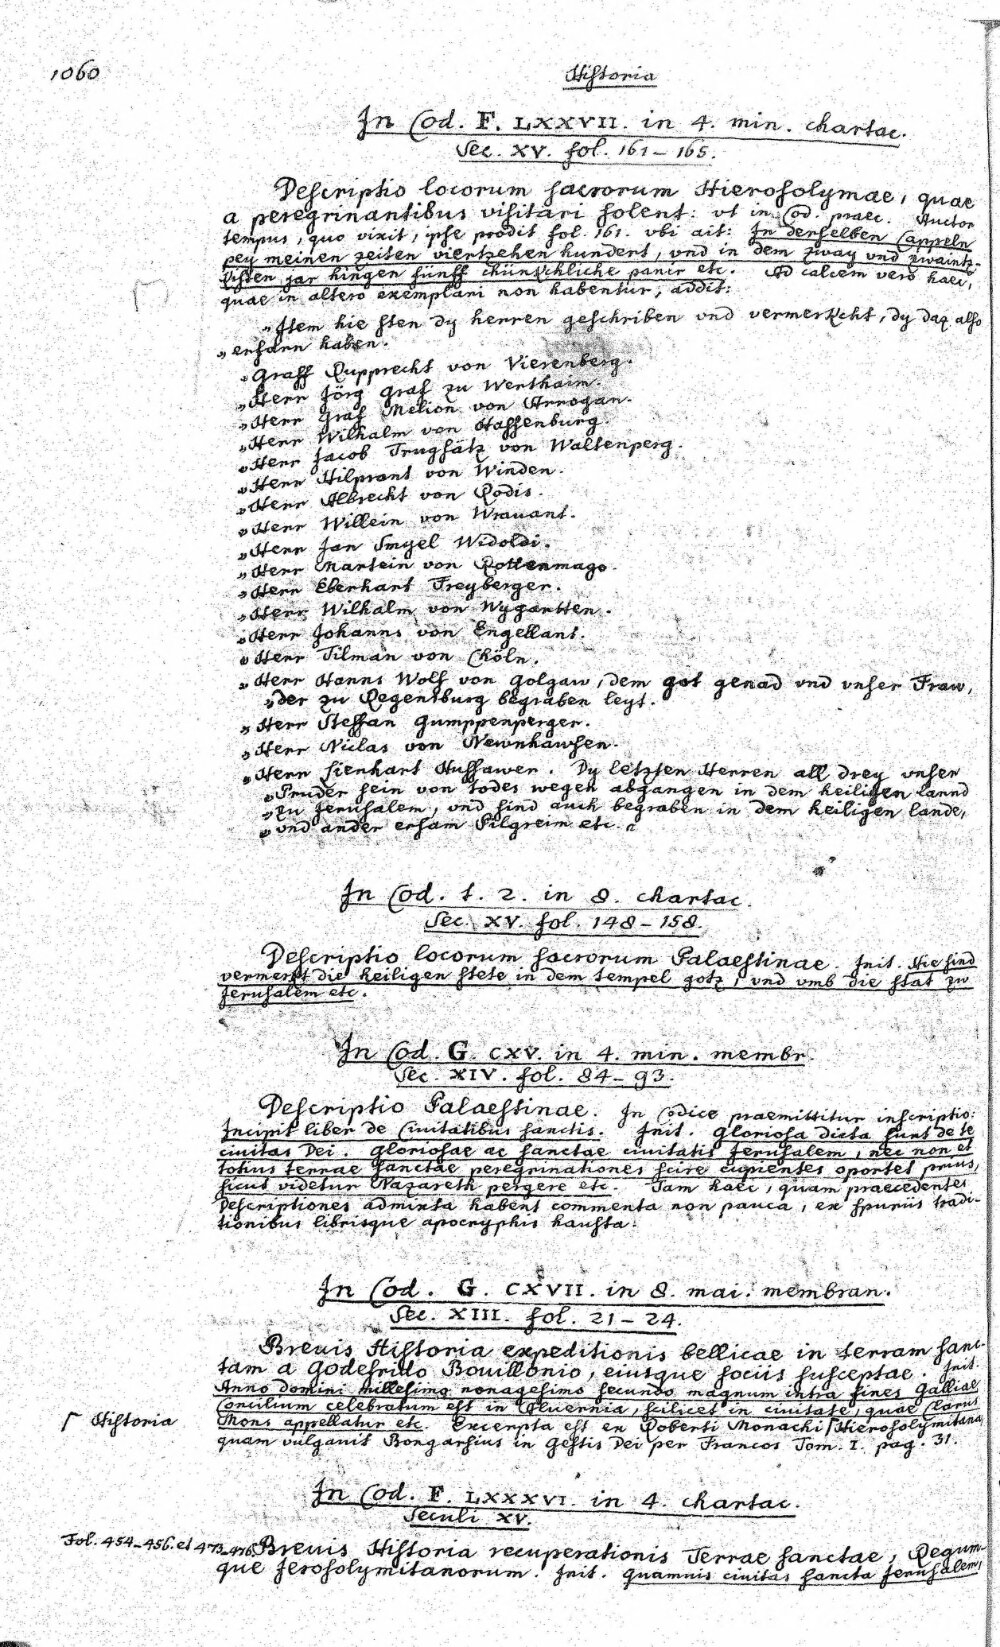 1060
Historia
In Cod. F. LXXVII. in 4. min. chartac.
Sec. XV. fol. 161-165.
Descriptio locorum sacrorum Hierosolymae, quae
a peregrinantibus visitari solent: vt in Cod. praec. Auctor
tempus, quo vixit, ipse prodit fol. 161. vbi ait: In derselben Cappeln
pey meinen zeiten viertzehen hundert, vnd in dem zway vnd zwaintz-
kisten jar hingen fünff chünskchliche panir etc. Ad calcem vero haec,
quae in altero exemplari non habentur, addit:
„Item hie sten dy herren geschriben vnd vermerkcht, dy daz also
„erfarn haben.
„Graff Rupprecht von Vierenberg.
„Herr Jörg Graf zu Werthaim.
„Herr Graf Melion von Arrogan.
„Herr Wilhalm von Haffenburg.
„Herr Jacob Trugsätz von Waltenperg.
„Herr Hilprant von Winden.
„Herr Albrecht von Rodis.
„Herr Willein von Wrauant.
„Herr Jan Smyel Widoldi.
„Herr Martein von Rottenmago.
„Herr Eberhart Freyberger.
„Herr Wilhalm von Wygartten.
„Herr Johanns von Engellant.
„Herr Tilman von Chöln.
„Herr Hanns Wolf von Golgaw, dem got genad vnd vnser Fraw,
„der zu Regenspurg begraben leyt.
„Herr Steffan Gumppenperger.
„Herr Niclas von Newnhawsen.
„Herr Lienhart Hussawer. Dy letzten Herren all drey vnser
„Pruder sein von todes wegen abgangen in dem heiligen lannd
„zu Jerusalem, vnd sind auch begraben in dem heiligen lande,
„vnd ander ersam Pilgreim etc.
In Cod. I. 2. in 8. chartac.
Sec. XV. fol. 148-158.
Descriptio locorum sacrorum Palaestinae. Init. Hie sind
vermerkt die heiligen stete in dem tempel gotz, vnd vmb die stat zu
Jerusalem etc.
In Cod. G. CXV. in 4. min. membr.
Sec. XIV. fol. 84-93.
Descriptio Palaestinae. In Codice praemittitur inscriptio:
Incipit liber de Ciuitatibus sanctis. Init. Gloriosa dicta sunt de te
ciuitas Dei. Gloriosae ac sanctae ciuitatis Jerusalem, nec non et
totius terrae sanctae peregrinationes scire cupientes oportet prius,
sicut videtur Nazareth pergere etc. Tam haec, quam praecedentes
Descriptiones admixta habent commenta non pauca, ex spuriis tradi-
tionibus librisque apocryphis hausta.
In Cod. G. CXVII. in 8. mai. membran.
Sec. XIII. fol. 21-24.
Breuis Historia expeditionis bellicae in terram sanc-
tam a Godefrido Bouillonio, eiusque sociis susceptae. Init.
Anno domini millesimo nonagesimo secundo magnum intra fines Galliae
Concilium celebratum est in Aluernia, scilicet in ciuitate, quae Clarus
Mons appellatur etc. Excerpta est ex Roberti Monachi Γ Hierosolymitana,
Γ Historia
quam vulgauit Bongarsius in Gestis Dei per Francos Tom. I. pag. 31.
In Cod. F. LXXXVI. in 4. chartac.
Seculi XV.
Fol. 454-456. et 473-476.
Breuis Historia recuperationis Terrae sanctae, Regum-
que Jerosolymitanorum. Init. Quamuis ciuitas sancta Jerusalem,